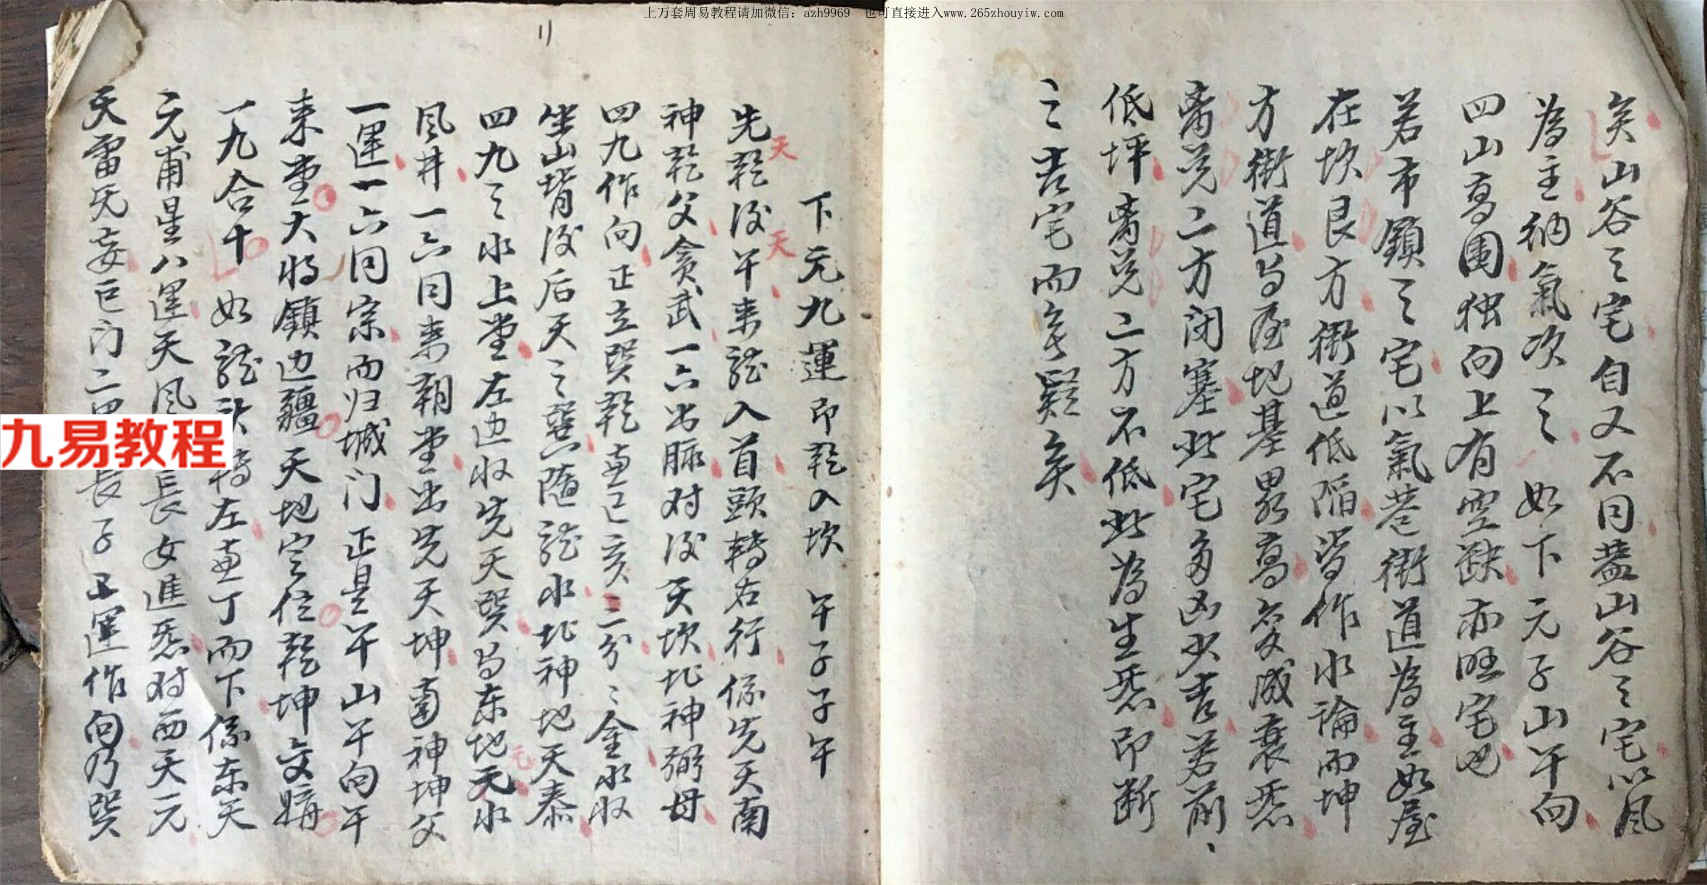 上万套周易教程请加微信：azh9969　也可直接进入www.265zhouyiw.com
矣山谷之宅自又不同盖山谷之宅以风
為主納氣次之如下元子山午向
四山高围独向上有空缺亦旺宅也
若市鎮之宅以氣巷街道為主如屋
在坎艮方街道低陷皆作水論而坤
方街道与屋地基界高交成衰恶
离兑二方闭塞此宅多凶少吉若前、
低坪离兑二方不低此為生恶即断
之吉宅而無疑矣
11
下元九運即乾入坎　午子子午
天
天
先乾后午来龍入首頭轉右行係先天南
神乾父贪武一六出脈对后天坎北神弼母
四九作向正立巽乾兼巳亥三分三金水收
坐山背后后天之巽随龍水北神地天泰
四九之水上堂左边收先天巽与东地元水
元
风井一六同来朝堂出先天坤南神坤父
一運一六同宗而归城门正是午山午向午
来堂大将鎮边疆天地定位乾坤交媾
一九合十如龍欲轉左兼丁而下係东天
元甫星八運天风長女進恶对西天元
天雷无妄巨门二長子五運作向乃巽
九易教程